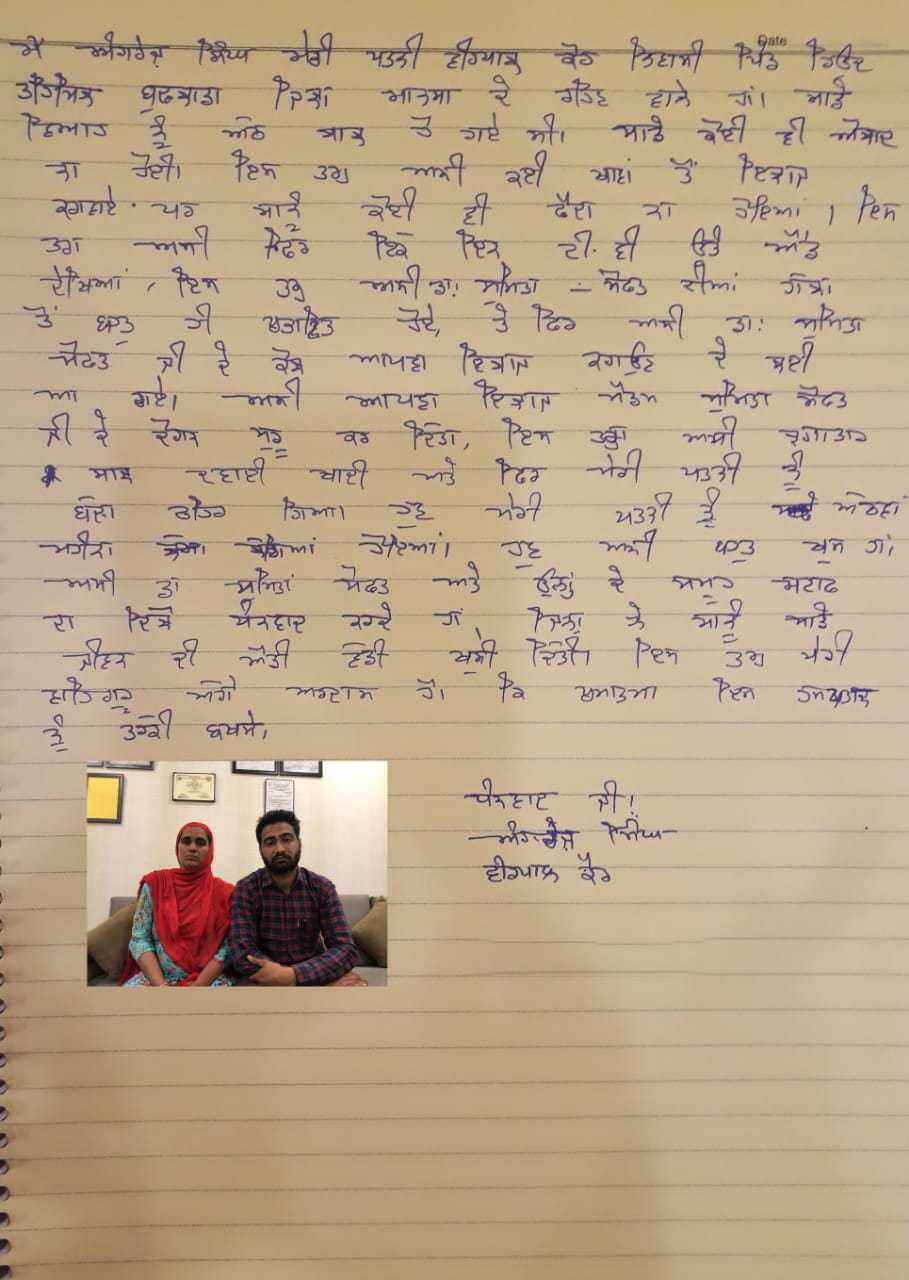 Date
ਮੈਂ ਅੰਗਰੇਜ਼ ਸਿੰਘ ਮੇਰੀ ਪਤਨੀ ਵੀਰਪਾਲ ਕੌਰ ਨਿਵਾਸੀ ਪਿੰਡ
ਬੁਢਲਾਡਾ ਜਿਲਾ ਮਾਨਸਾ ਦੇ ਰਹਿਣ ਵਾਲੇ ਹਾਂ। ਸਾਡੇ
ਵਿਆਹ ਨੂੰ ਅੱਠ ਸਾਲ ਹੋ ਗਏ ਸੀ। ਸਾਡੇ ਕੋਈ ਵੀ ਔਲਾਦ
ਨਾ ਹੋਈ। ਇਸ ਤਰਾ ਅਸੀ ਕਈ ਥਾਵਾਂ ਤੋਂ ਇਲਾਜ
ਕਰਵਾਏ. ਪਰ ਸਾਨੂੰ ਕੋਈ ਵੀ ਫੈਦਾ ਨਾ ਹੋਇਆਂ। ਇਸ
ਤਰਾ ਅਸੀ ਫਿਰ ਇਕ ਦਿਨ ਟੀ.ਵੀ ਉਤੇ ਐਡ
ਦੇਖਿਆਂ, ਇਸ ਤਰ੍ਹਾ ਅਸੀ ਡਾ: ਸੁਮਿਤਾ - ਸੋਫਤ ਦੀਆਂ ਗੱਲਾਂ
ਤੋਂ ਬਹੁਤ ਹੀ ਪ੍ਰਭਾਵਿਤ ਹੋਏ, ਤੇ ਫਿਰ ਅਸੀ ਡਾ: ਸੁਮਿਤਾ
ਸੋਫਤ ਜੀ ਦੇ ਕੋਲ ਆਪਣਾ ਇਲਾਜ ਕਰਾਉਣ ਦੇ ਲਈ
ਆ ਗਏ। ਅਸੀ ਆਪਣਾ ਇਲਾਜ ਮੈਡਮ ਸੁਮਿਤਾ ਸੋਫਤ
ਜੀ ਦੇ ਸ਼ੁਰੂ ਕਰ ਦਿੱਤਾ, ਇਸ ਤਰ੍ਹਾ ਅਸੀ ਲਗਾਤਾਰ
ਸਾਲ ਦਵਾਈ ਖਾਦੀ ਅਤੇ ਫਿਰ ਮੇਰੀ ਪਤਨੀ ਨੂੰ
ਬੱਚਾ ਠਹਿਰ ਗਿਆ। ਹੁਣ ਮੇਰੀ ਪਤਨੀ ਨੂੰ ਅੱਠਵਾਂ
ਮਹੀਨਾ ਹੋਇਆਂ। ਹੁਣ ਅਸੀ ਬਹੁਤ ਖੁਸ਼ ਹਾਂ,
ਅਸੀ ਡਾ ਸੁਮਿਤਾਂ ਸੋਫਤ ਅਤੇ ਉਨ੍ਹਾਂ ਦੇ ਸਮੂਹ ਸਟਾਫ
ਦਾ ਦਿਲੋ ਧੰਨਵਾਦ ਕਰਦੇ ਹਾਂ ਜਿਨ੍ਹਾ ਨੇ ਸਾਨੂੰ ਸਾਡੇ
ਜੀਵਨ ਦੀ ਐਡੀ ਵੱਡੀ ਖੁਸ਼ੀ ਦਿੱਤੀ। ਇਸ ਤਰ੍ਹਾ ਮੇਰੀ
ਵਾਹਿਗੁਰੂ ਅੱਗੇ ਅਰਦਾਸ ਹੈ। ਕਿ ਪ੍ਰਮਾਤਮਾ ਇਸ ਹਸਪਤਾਲ
ਨੂੰ ਤਰੱਕੀ ਬਖਸ਼ੇ।
ਧੰਨਵਾਦ ਜੀ!
ਅੰਗਰੇਜ਼ ਸਿੰਘ
ਵੀਰਪਾਲ ਕੌਰ